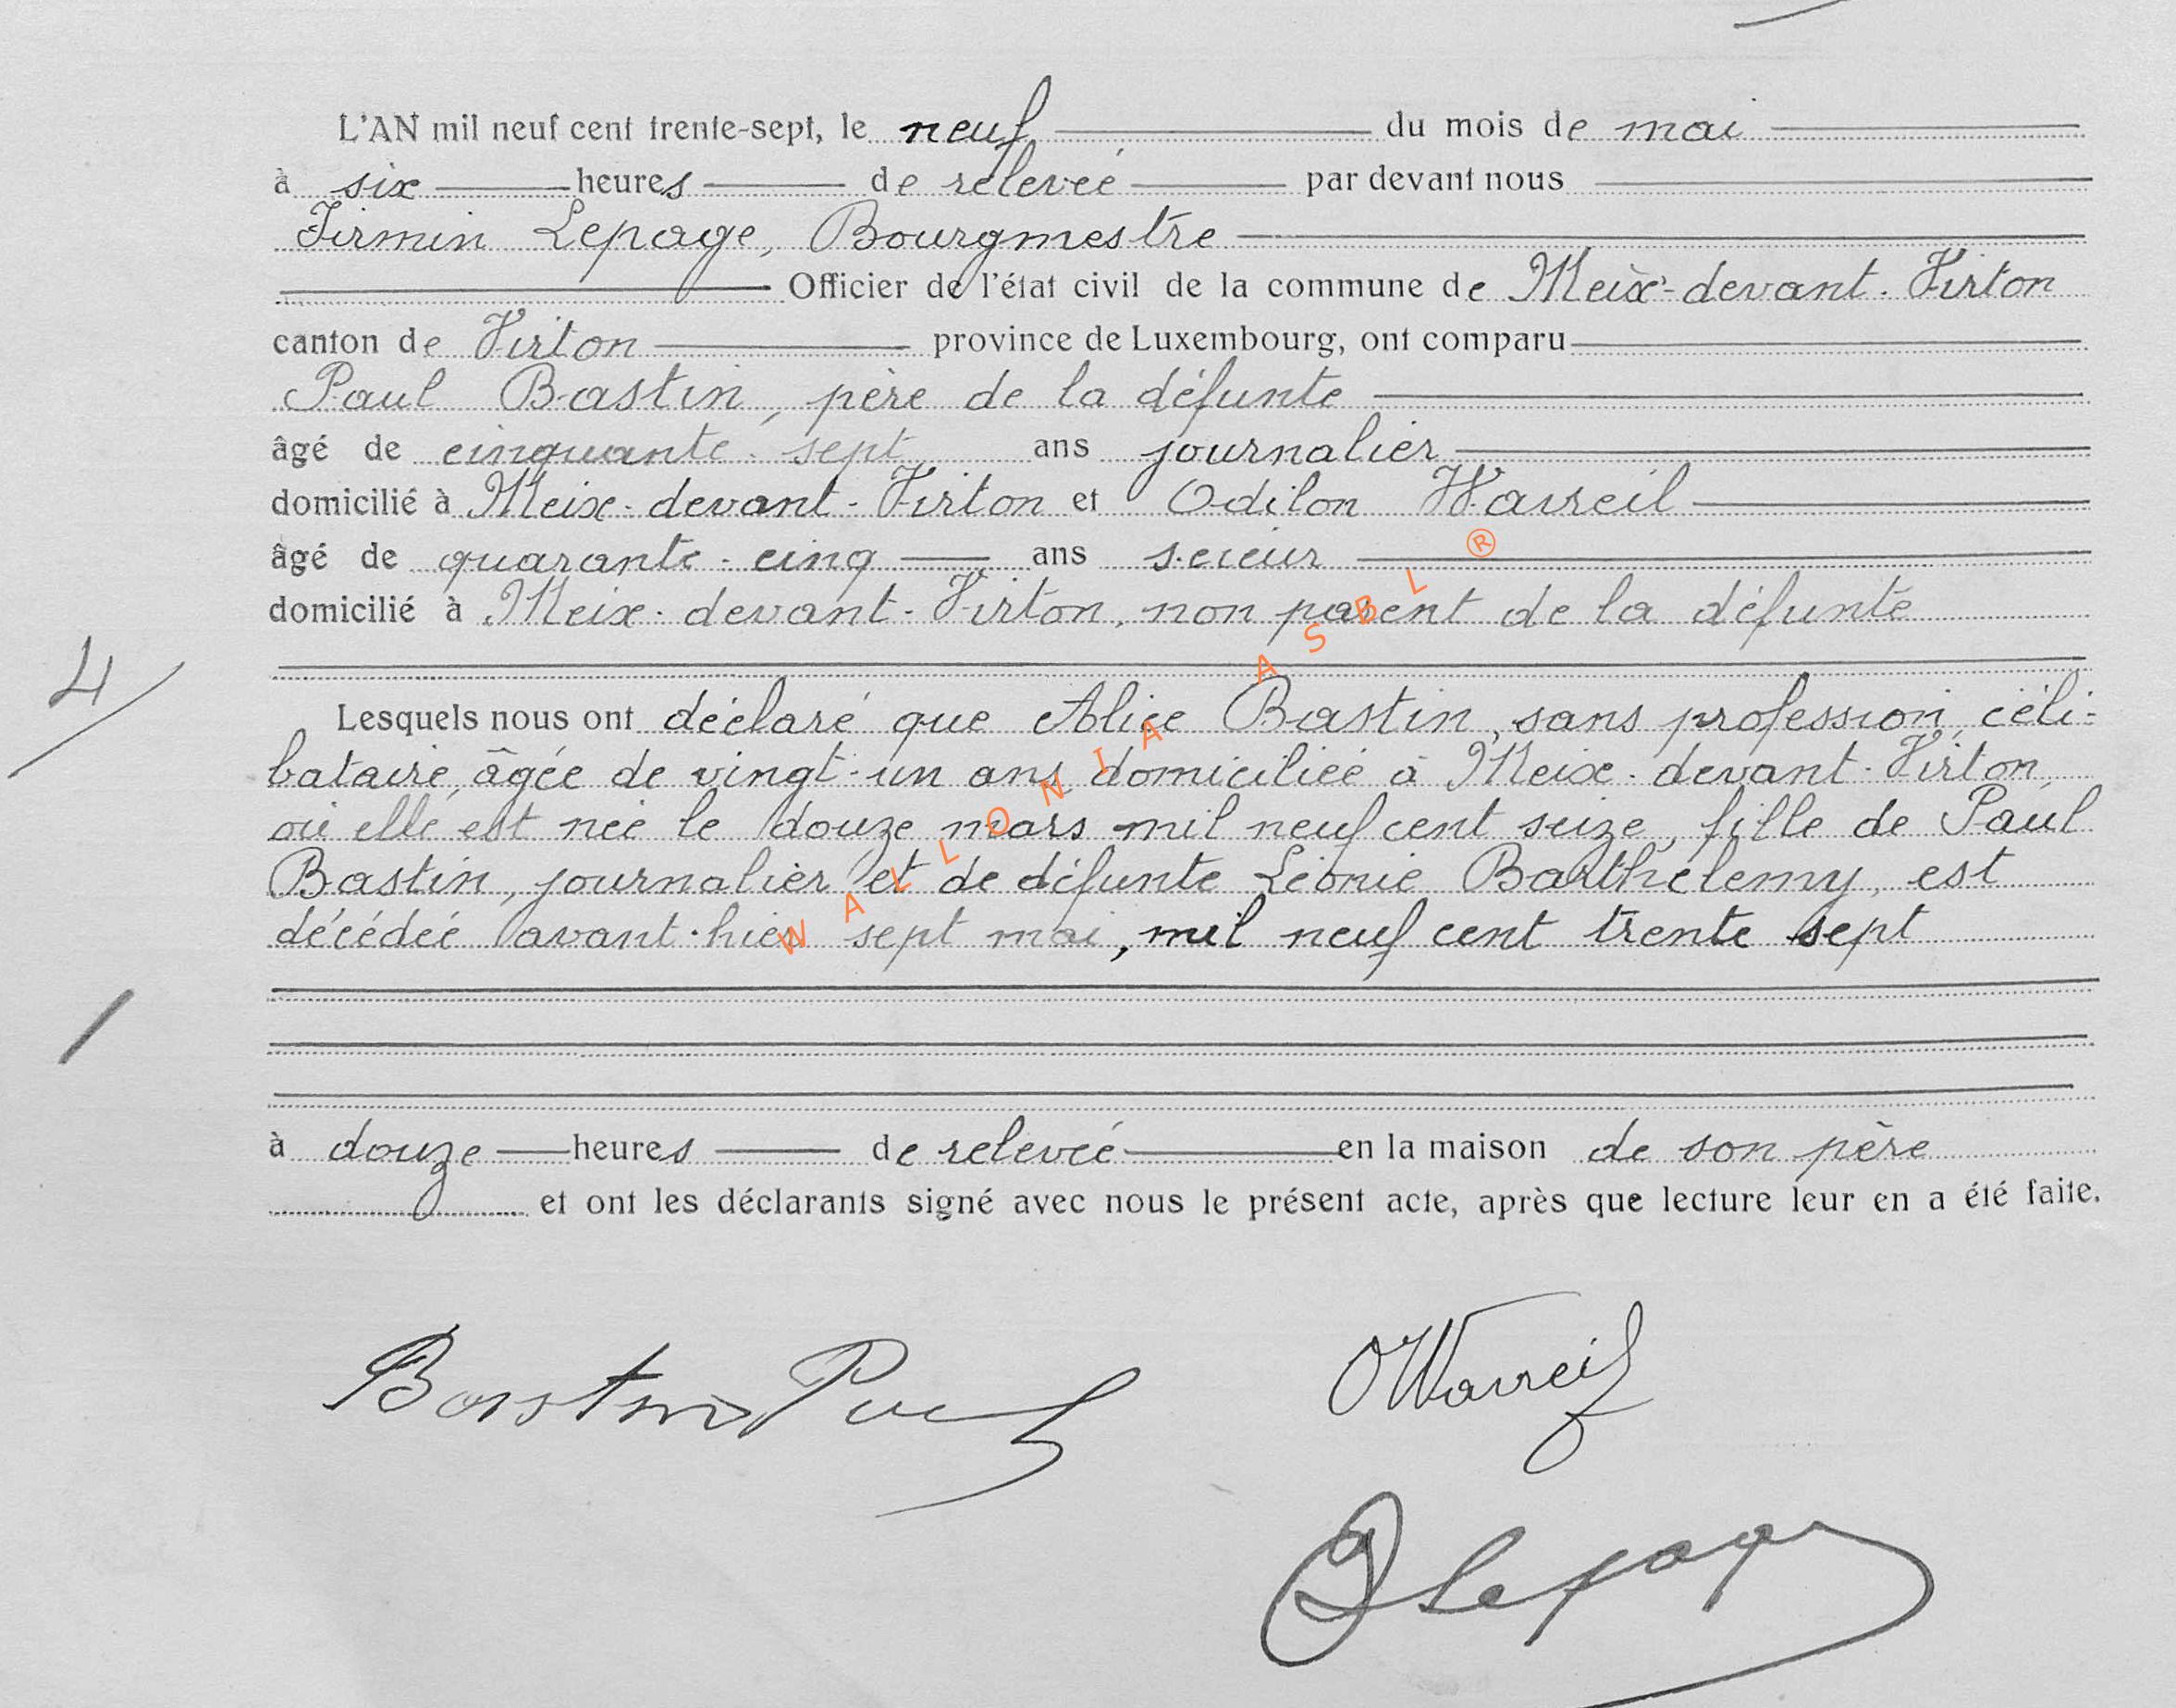 L'AN mil neuf cent trente-sept, le neuf du mois de mai
à six heures de relevée par devant nous
Firmin Lepage, Bourgmestre
Officier de l'état civil de la commune de Meix-devant-Virton
canton de Virton province de Luxembourg, ont comparu
Paul Bastin, père de la défunte
âgé de cinquante-sept ans journalier
domicilié à Meix-devant-Virton et Odilon Warreil
âgé de quarante-cinq ans scieur
domicilié à Meix-devant-Virton, non parent de la défunte
4
Lesquels nous ont déclaré que Alice Bastin, sans profession, céli-
bataire, âgée de vingt-un ans, domiciliée à Meix-devant-Virton,
où elle est née le douze mars mil neuf cent seize, fille de Paul
Bastin, journalier et de défunte Léonie Barthélemy, est
décédée avant-hier sept mai, mil neuf cent trente sept
à douze heures de relevée en la maison de son père
et ont les déclarants signé avec nous le présent acte, après que lecture leur en a été faite.
Bastin Paul
OWarreil
Lepage
WALLONIA ASBL ®